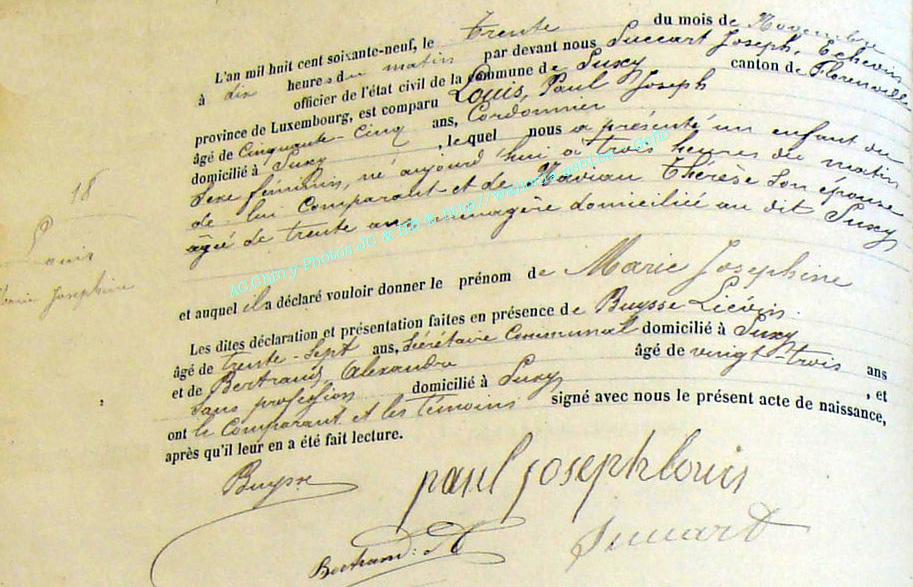 L'an mil huit cent soixante-neuf, le trente du mois de Novembre
à dix heures du matin par devant nous Succart Joseph, Echevin
officier de l'état civil de la Commune de Suxy canton de Florenville
province de Luxembourg, est comparu Louis, Paul Joseph
âgé de Cinquante-Cinq ans, Cordonnier
domicilié à Suxy , lequel nous a présenté un enfant du
Sexe féminin, né aujourd'hui à trois heures du matin
de lui Comparant et de Thérèse son épouse
agée de trente ans ménagère domiciliée au dit Suxy
18
Louis
Marie Josephine
et auquel il a déclaré vouloir donner le prénom de Marie Josephine
Les dites déclaration et présentation faites en présence de Buysse Liévin
âgé de trente-sept ans, Sécrétaire Communal domicilié à Suxy
et de Bertrand, Alexandre âgé de vingt-trois ans
sans profession domicilié à Suxy , et
ont le Comparant et les témoins signé avec nous le présent acte de naissance,
après qu'il leur en a été fait lecture.
Buysse
paul joseph louis
Bertrand. A
Succart